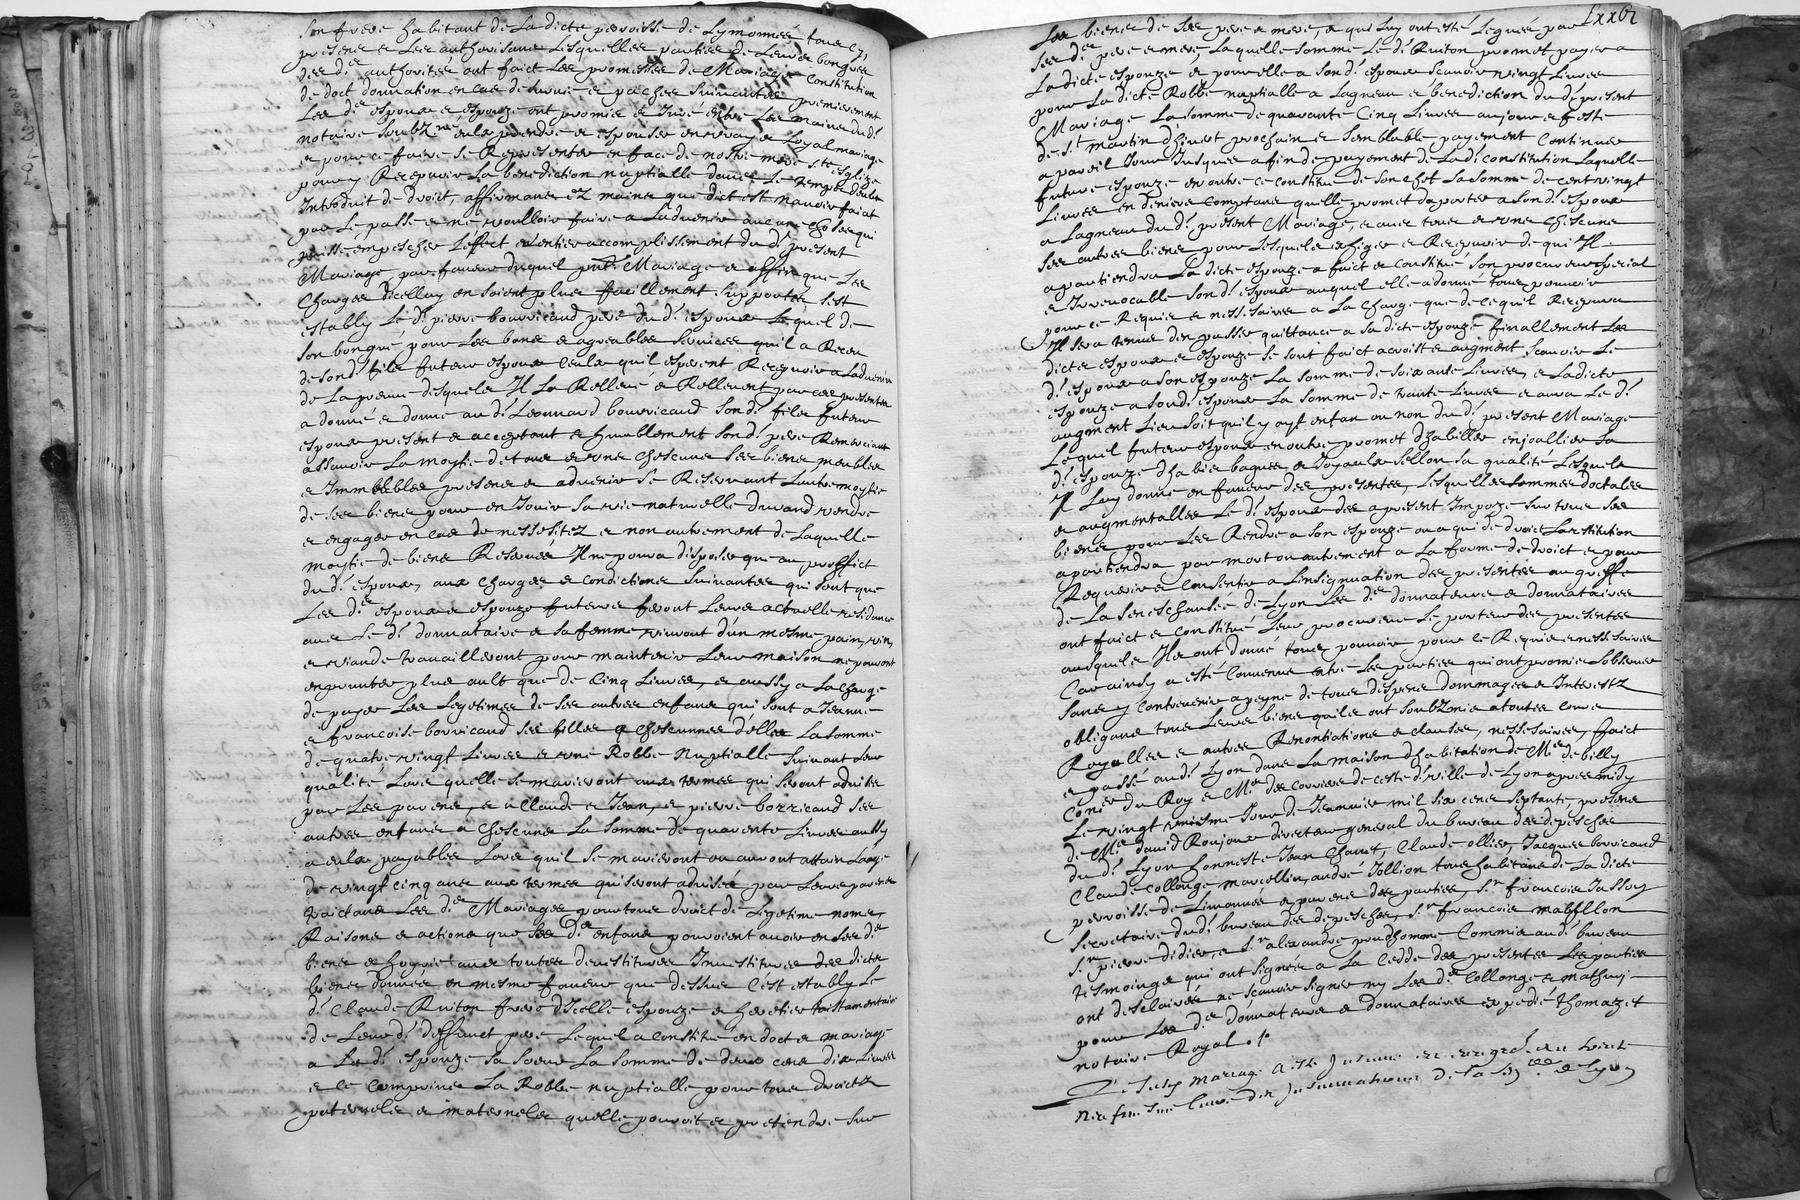 son frere habitant de la dicte perroisse de Lymonnes tous cy
presens & les authorisans lesquelles parties de leurs bongres
des d. authoritez ont faict les promesses de Mariage constitution
de doct donnation en cas de survie & paches suivantes premierement
les ds espoux & espouze ont promis & Juré entre les mains dudt
notaire soubzne eulx prendre & espouser en vray & Loyal mariage
& pour ce faire se Representer en face de nostre mere ste esglize
pour y Recepvoir la benediction nuptialle dans le temps deub
Introduit de droict, affirmans ez mains que dict est n'avoir faict
par le passé & ne voulloir faire a l'advenir aucune chose qui
puisse empescher l'effect & entier accomplissement du d. present
Mariage, par faveur duquel pnt Mariage & affin que les
charges dicelluy en soient plus facillement supportés s'est
estably le dt pierre bouvricaud pere du d. espoux lequel de
son bongre pour les bons & agreables services quil a Receu
de sond. filz futeur espoux & ceulx quil esperent Recepvoir a Ladvenir
de la preuve desquels Il la Rellevé & Rellevent par ces presentes
a donné & donne au d. Leonnard bouvricaud sond. filz futeur
espoux present & acceptant & humblement sond. pere Remerciant
assavoir la moytie de tous & uns chescuns ses biens meubles
& Immeubles presens & advenir se Reservant l'autre moytie
de ses biens pour en Jouir sa vie naturelle durand vendre
& engager en cas de nessessitez & non autrement de laquelle
moytie de biens Reservee Il ne pourra disposer que au proffict
du d. espoux, aux charges & condictions suivantes qui sont que
les ds espoux & espouze futeurs feront leurs actuelle residance
avec le d. donnataire & sa femme vivront d'un mesme pain, vin,
& viande travailleront pour maintenir leur maison ne pouront
enprunter plus ault que de cinq Livres, & aussy a la charge
de payer les legetimes de ses autres enfans qui sont a Jeanne
& francoise bouvricaud ses filles a chescunnes d'elles la somme
de quatre vingt livres & une Robbe Nuptialle suivant leur
qualité lors quelle se marieront aux termes qui seront advises
par les parens, & a Claude & Jean, & pierre bouvricaud ses
autres enfans a chescuns la somme de quarente livres aussy
a eulx payables lors quil se marieront ou auront attain l'aage
de vingt cinq ans aux termes qui seront advisés par leurs parens
traictans les ds Mariages pour tous droict de legetime noms,
Raisons & actions que les ds enfans pouroient avoir en ses ds
biens & hoyrie avec toutes devestitures Investitures des dicts
biens donnés en mesme faveur que dessus c'est estably le
d. Claude Ruiton frere d'icelle espouze & heretier testamentaire
de leur d. deffunct pere lequel a constitue en doct & mariage
a la d. espouze sa soeur la somme de deux cens dix livres
& ce comprins la Robbe nuptialle pour tous droictz
paternels & maternels quelle pouroit & pretendre sur
Lxx61
les biens de ses pere & mere, & qui luy ont esté leguée par
ses ds pere & mere, laquelle somme le d. Ruiton promet payer a
la dicte espouze & pour elle a sond. espoux scavoir vingt Livres
pour la dicte Robbe nuptialle a lagneau & benediction du d. present
Mariage la somme de quarante cinq livres au jour & feste
de st martin d'hivert prochain & semblable payement continuer
a pareil Jour jusques a fin de payement de la d. constitution laquelle
future espouze en outre ce constitue de son chef la somme de cent vingt
Livres en deniers comptans quelle promet d'aporter a sond. espoux
a lagneau du d. present Mariage, & avec tous & uns chescuns
ses autres biens pour lesquels exhiger & Recepvoir de qui Il
apartiendra la dicte espouze a faict & constitué son procureur special
& Irrevocable sond. espoux auquel elle a donne tous pouvoir
pour ce Requis & nessessaires a la charge que de ce quil Recepvra
Il sera tenus den passer quittance a sa dicte espouze finallement les
dictz espoux & espouze se sont faict acroist & augment scavoir le
d. espoux a son espouze la somme de soixante livres, & la dicte
espouze a sond. espoux la somme de trante livres & aura le d.
augment lieu soit quil y ayt enfan ou non du d. present Mariage
Lequel futeur espoux en outre promet d'habiller enjoallier sa
d. espouze d'habis bagues & Joyaulx sellon sa qualité lesquels
Il luy donne en faveur des presentes, lesquelles sommes doctales
& augmentalles le d. espoux des a present Impoze sur tous ses
biens pour les Rendre a son espouze ou a qui de droict la restitution
apartiendra par mort ou autrement a la forme de droict & pour
Requerir & consentir a l'insignuation des presentes au greffe
de la seneschaussée de Lyon les ds donnateurs & donnataires
ont faict & constitué leur procureur le porteur des presentes
ausquels Ils ont donné tous pouvoir pour ce Requis & nessessaires
Car ainsy a esté convenus entre les parties qui ont promis l'observer
sans y contrevenir a peyne de tous despens dommages & Interestz
obligans tous leurs biens quils ont soubzmis a toutes cours
Royalles & autres Renontiations & clauses, nessessaires, faict
& passé au d. Lyon dans la maison d'habitation de Mre de billy
Coner du Roy & Me des corriers de ceste d. ville de Lyon apres midy
le vingt uniesme Jour de Jeanvier mil six cens septante, presens
de Mre david Roujoux directeur general du bureau des depesches
du d. Lyon honneste Jean Chavet, Claude ollier, Jacques bouvricaud
Claude Collonge, Marcellin, andré Jollion tous habitans de la dicte
perroisse de Limonnes & parens des parties, sr francois Jassoy
Secretaire du d. bureau des depesches, sr francois mabfllon
sr pierre didier, & sr alexandre prudhomme commis au d. bureau
tesmoings qui ont signés a la cedde des presentes les parties
ont desclairés ne scavoir signer ny les ds Collonge & mathivi
pour les ds donnateurs & donnataires expedié thomazet
notaire Royal
mariage a esté Insinué et enregré au Soixte
livre des Insinuations de la de Lyon